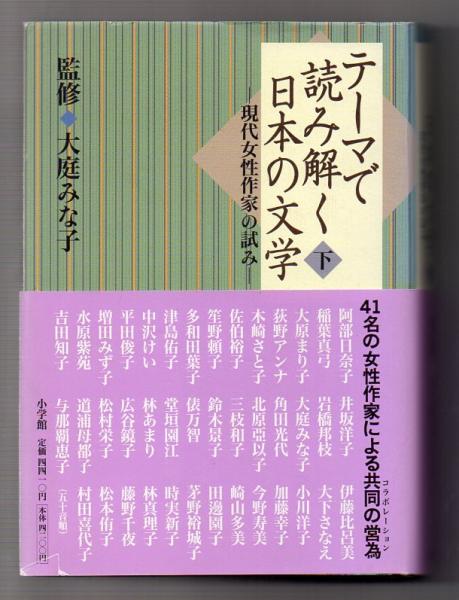 テーマで
読み解く
日本の文学 下
―現代女性作家の試み―
監修◆大庭みな子
41名の女性作家による共同の営為
コラボレーション
阿部日奈子 井坂洋子 伊藤比呂美
稲葉真弓 岩橋邦枝 大下さなえ
大原まり子 大庭みな子 小川洋子
荻野アンナ 角田光代 加藤幸子
木崎さと子 北原亞以子 今野寿美
佐伯裕子 三枝和子 崎山多美
笙野頼子 鈴木景子 田邊園子
多和田葉子 俵万智 茅野裕城子
津島佑子 堂垣園江 時実新子
中沢けい 林あまり 林真理子
平田俊子 広谷鏡子 藤野千夜
増田みず子 松村栄子 松本侑子
水原紫苑 道浦母都子 村田喜代子
吉田知子 与那覇恵子 (五十音順)
小学館 定価四四一〇円[本体四二〇〇円]